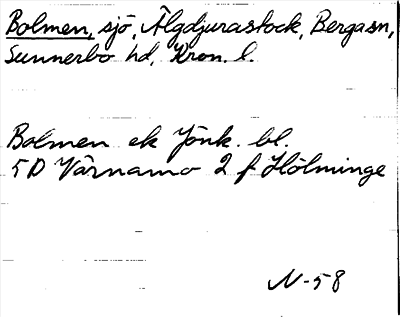 Bolmen, sjö, Älgdjurastock, Bergasn,
Sunnerbo hd, Kron. l.
Bolmen ek Jönk. bl.
5D Värnamo 2 f Hölminge
N-58